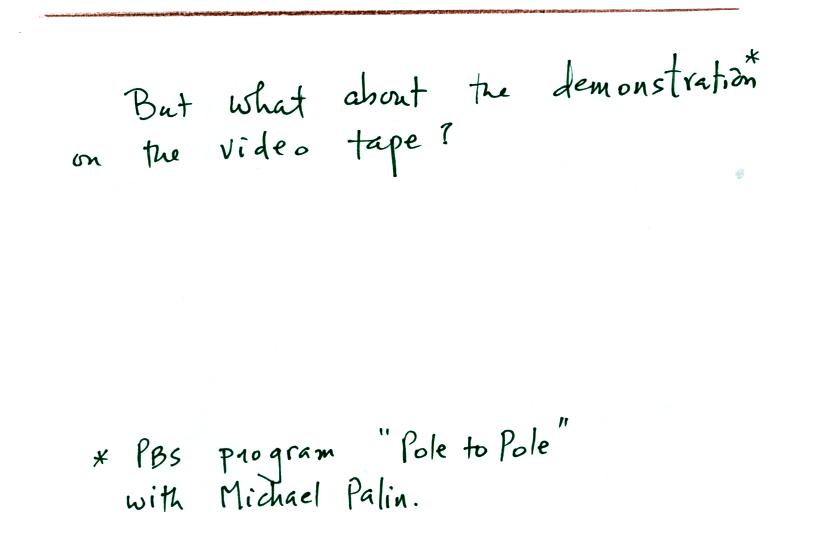 But what about the demonstration*
on the video tape?
* PBS program "Pole to Pole"
with Michael Palin.